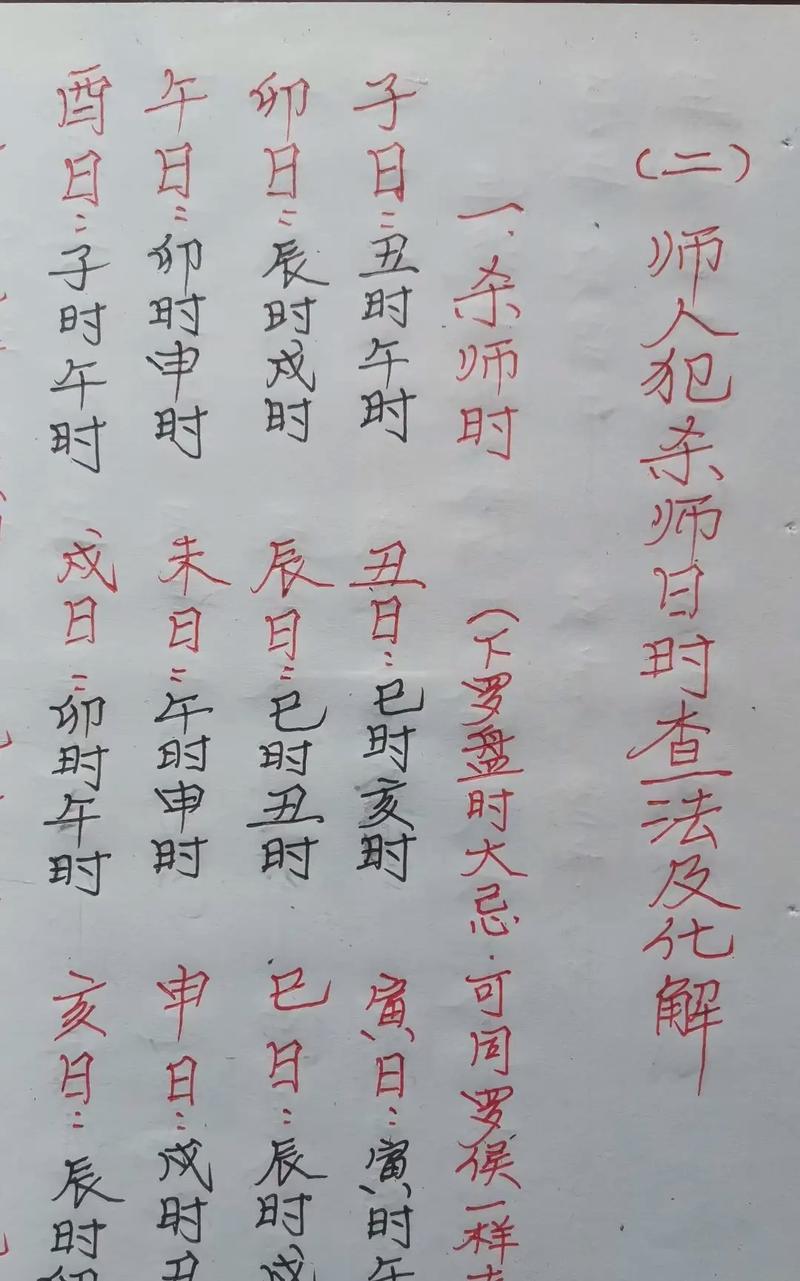 （二）师人犯杀师日时查法及化解
一、杀师时（下罗盘时大忌.可同罗侯一样
子日：丑时午时 丑日：巳时亥时 寅日：寅时午
卯日：辰时戌时 辰日：巳时丑时 巳日：辰时戌
午日：卯时申时 未日：午时申时 申日：戌时丑
酉日：子时午时 戌日：卯时午时 亥日：辰时卯